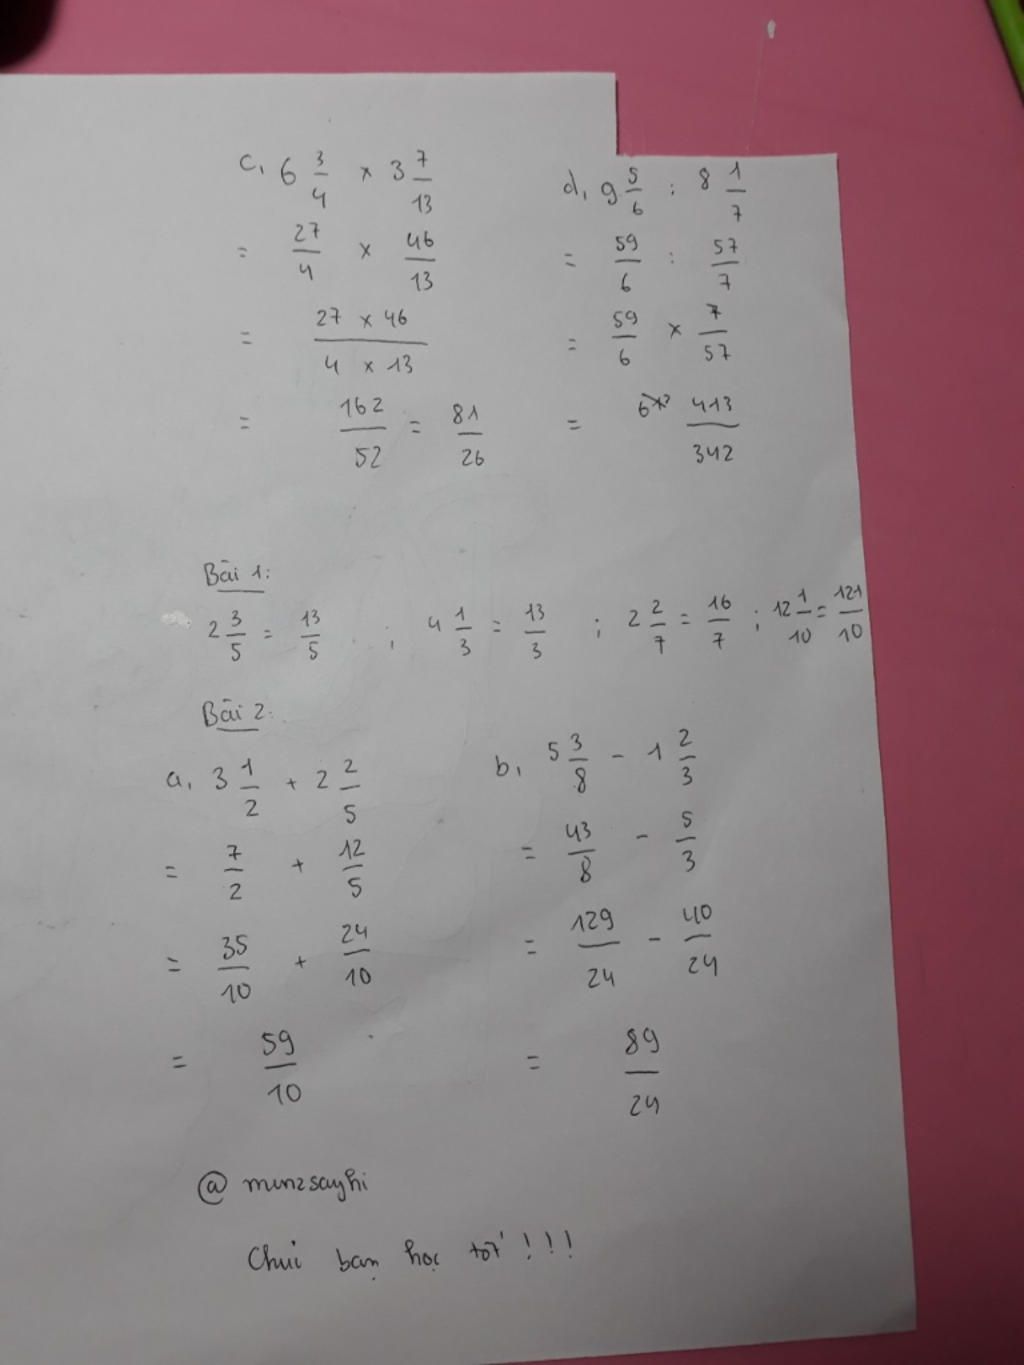 c, 6 3/4 × 3 7/13
= 27/4 × 46/13
= (27 × 46)/(4 × 13)
= 162/52 = 81/26
d, 9 5/6 : 8 1/7
= 59/6 : 57/7
= 59/6 × 7/57
= 413/342
Bài 1:
2 3/5 = 13/5 ; 4 1/3 = 13/3 ; 2 2/7 = 16/7 ; 12 1/10 = 121/10
Bài 2:
a, 3 1/2 + 2 2/5
= 7/2 + 12/5
= 35/10 + 24/10
= 59/10
b, 5 3/8 - 1 2/3
= 43/8 - 5/3
= 129/24 - 40/24
= 89/24
@ munzsayhi
Chúi bạn học tốt !!!